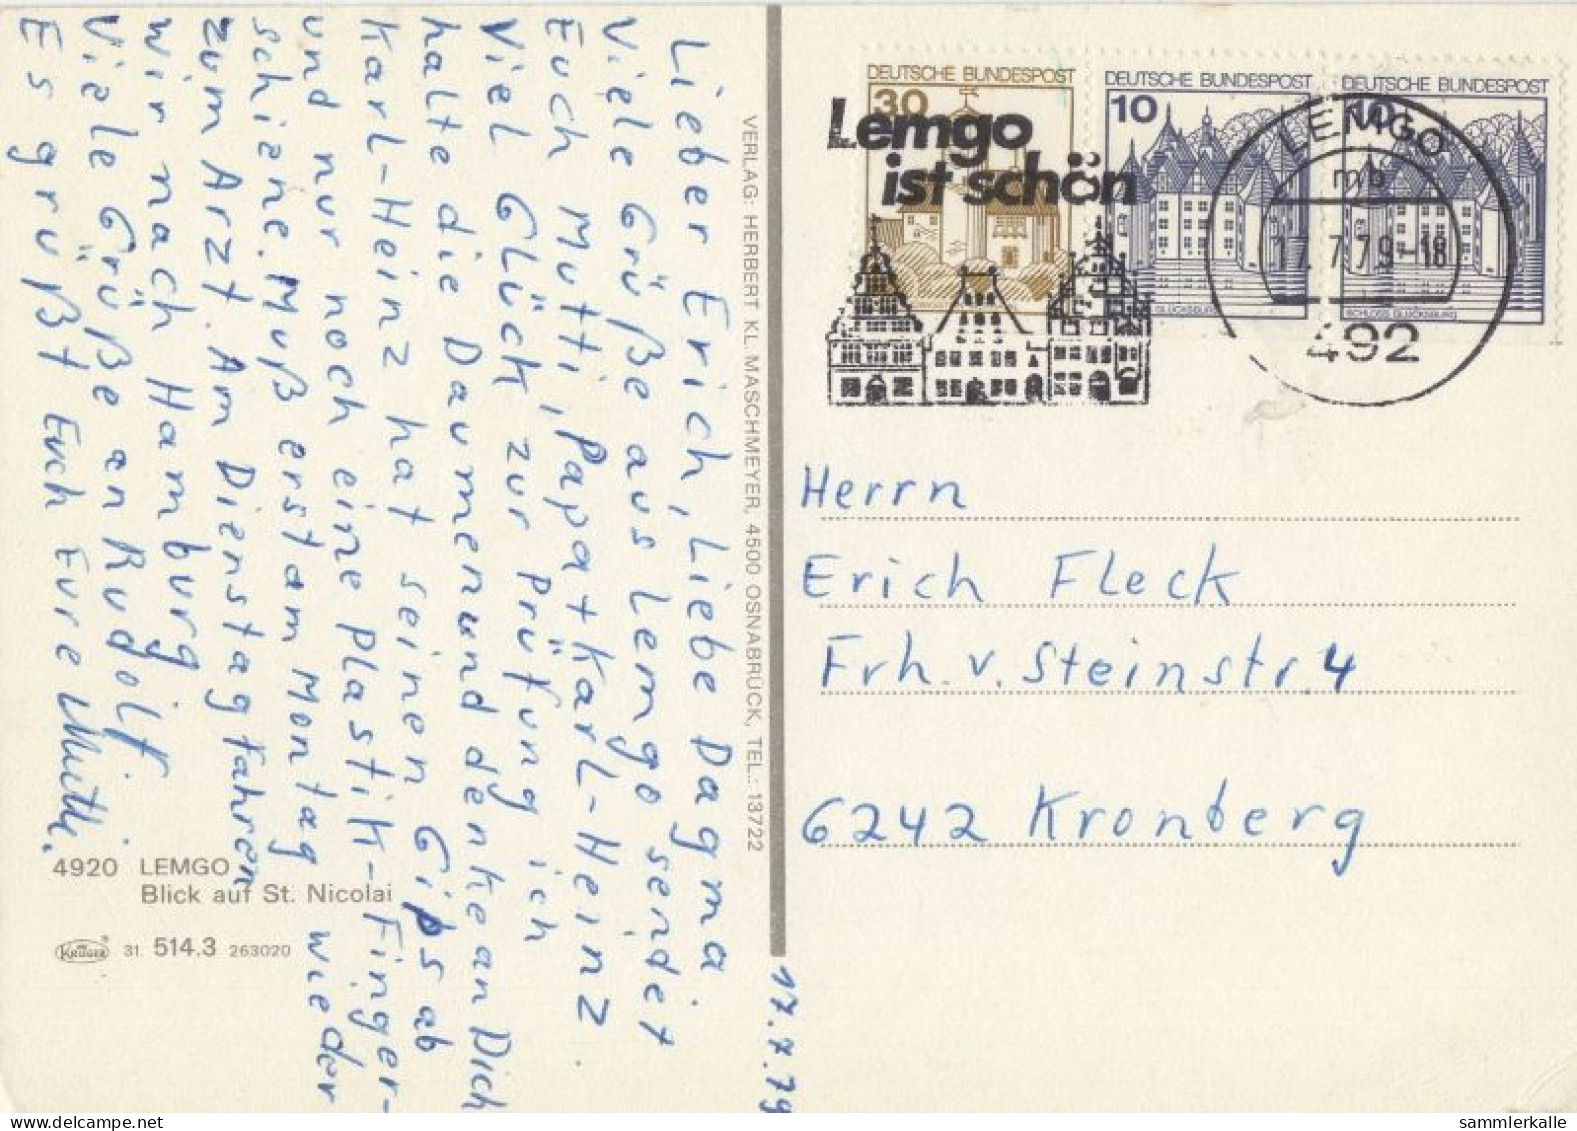 Lieber Erich, Liebe Dagma
Viele Grüße aus Lemgo sendet
Euch Mutti, Papa + Karl-Heinz.
Viel Glück zur Prüfung ich
halte die Daumen und denke an Dich
Karl-Heinz hat seinen Gips ab
und nur noch eine Plastik-Finger-
schiene. Muß erst am Montag wieder
zum Arzt. Am Dienstag fahren
wir nach Hamburg
Viele Grüße an Rudolf
Es grüßt Euch Eure Mutti.
17.7.79
4920 LEMGO
Blick auf St. Nicolai
KRÜGER 31 514.3 263020
VERLAG: HERBERT KL. MASCHMEYER, 4500 OSNABRÜCK, TEL.: 13722
DEUTSCHE BUNDESPOST
30
DEUTSCHE BUNDESPOST
10
GLÜCKSBURG
DEUTSCHE BUNDESPOST
10
SCHLOSS GLÜCKSBURG
Lemgo
ist schön
LEMGO
mb
17.7.79-18
492
Herrn
Erich Fleck
Frh. v. Steinstr. 4
6242 Kronberg
sammlerkalle